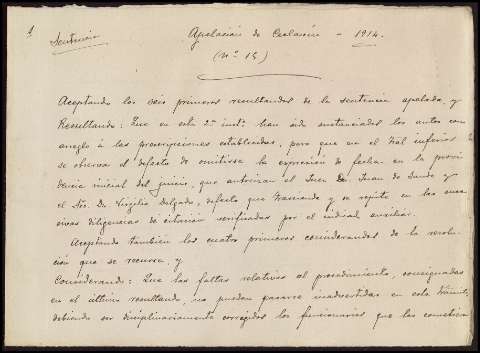 Sentencia
Apelación de Cesación - 1914.
(nº 15)
Aceptando los seis primeros resultandos de la sentencia apelada, y
Resultando: Que en esta 2ª instª han sido sustanciados los autos con
arreglo á las prescripciones establecidas, pero que en el tral inferior
se observa el defecto de omitirse la expresión de fecha en la provi
dencia inicial del juicio, que autorizan el Juez Dn Juan de
el Srio. Dn Virgilio Delgado, defecto que trasciende y se repite en las suce
sivas diligencias de citación verificadas por el indicado auxiliar.
Aceptando también los cuatro primeros considerandos de la resolu
ción que se recurre, y
Considerando: Que las faltas relativas al procedimiento, consignadas
en el último resultando, no pueden pasarse inadvertidas en este trámite
debiendo ser disciplinariamente corregidos los funcionarios que las cometieran